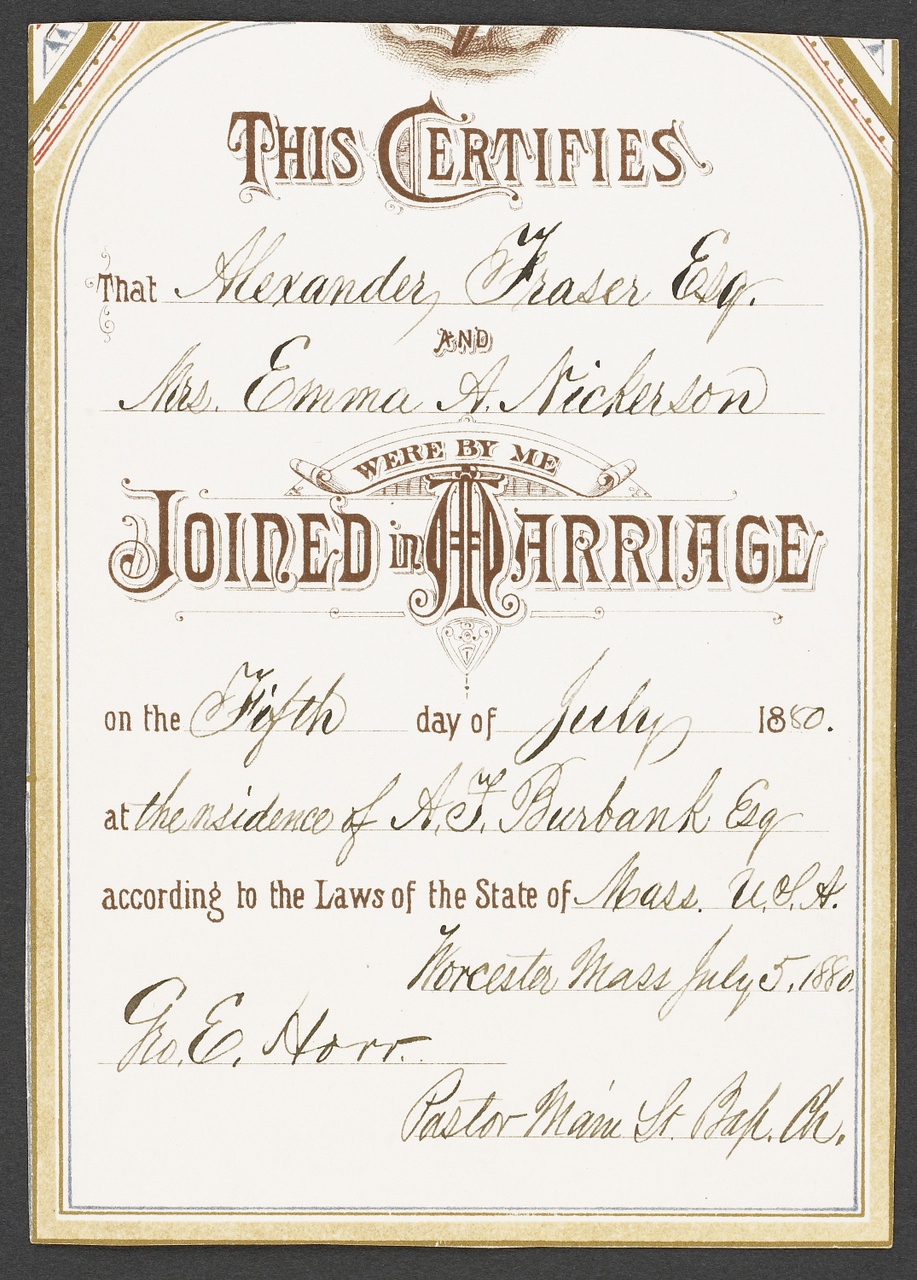 THIS CERTIFIES
That Alexander Fraser Esq.
AND
Mrs. Emma A. Nickerson
WERE BY ME
JOINED in MARRIAGE
on the Fifth day of July 1880.
at the residence of A. F. Burbank Esq
according to the Laws of the State of Mass. U.S.A.
Worcester Mass July 5, 1880.
Geo. E. Horr.
Pastor Main St. Bap. Ch.